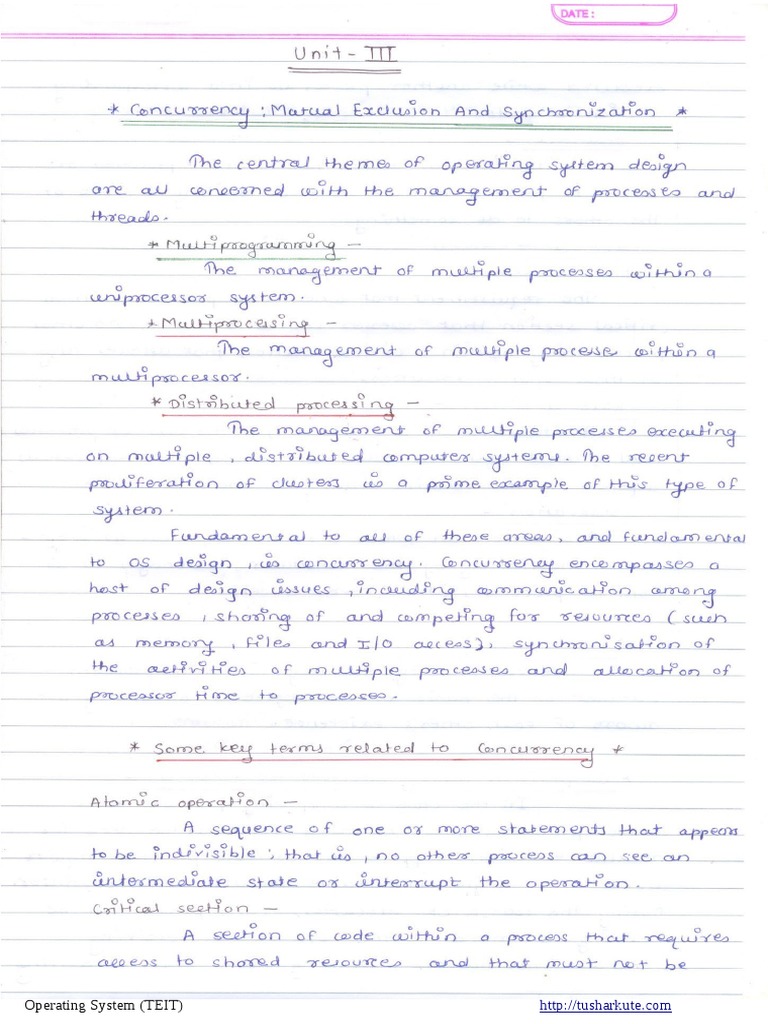 DATE:
Unit - III
* Concurrency : Mutual Exclusion And Synchronization *
The central themes of operating system design
are all concerned with the management of processes and
threads.
* Multiprogramming -
The management of multiple processes within a
uniprocessor system.
* Multiprocessing -
The management of multiple processe within a
multiprocessor.
* Distributed processing -
The management of multiple processes executing
on multiple , distributed computer systems. The recent
proliferation of clusters is a prime example of this type of
system.
Fundamental to all of these areas, and fundamental
to OS design , is concurrency. Concurrency encompasses a
host of design issues , including communication among
processes , sharing of and competing for resources ( such
as memory , files and I/O access), synchronisation of
the activities of multiple processes and allocation of
processor time to processes.
* Some key terms related to Concurrency *
Atomic operation -
A sequence of one or more statements that appears
to be indivisible ; that is , no other process can see an
intermediate state or interrupt the operation.
Critical section -
A section of code within a process that requires
access to shared resources and that must not be
Operating System (TEIT) http://tusharkute.com